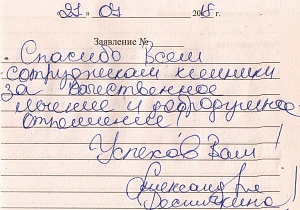 21 » 07 2018 г.
Заявление №
Спасибо Всем
сотрудникам клиники
за качественное
лечение и добродушное
отношение!
Успехов Вам!
Александра